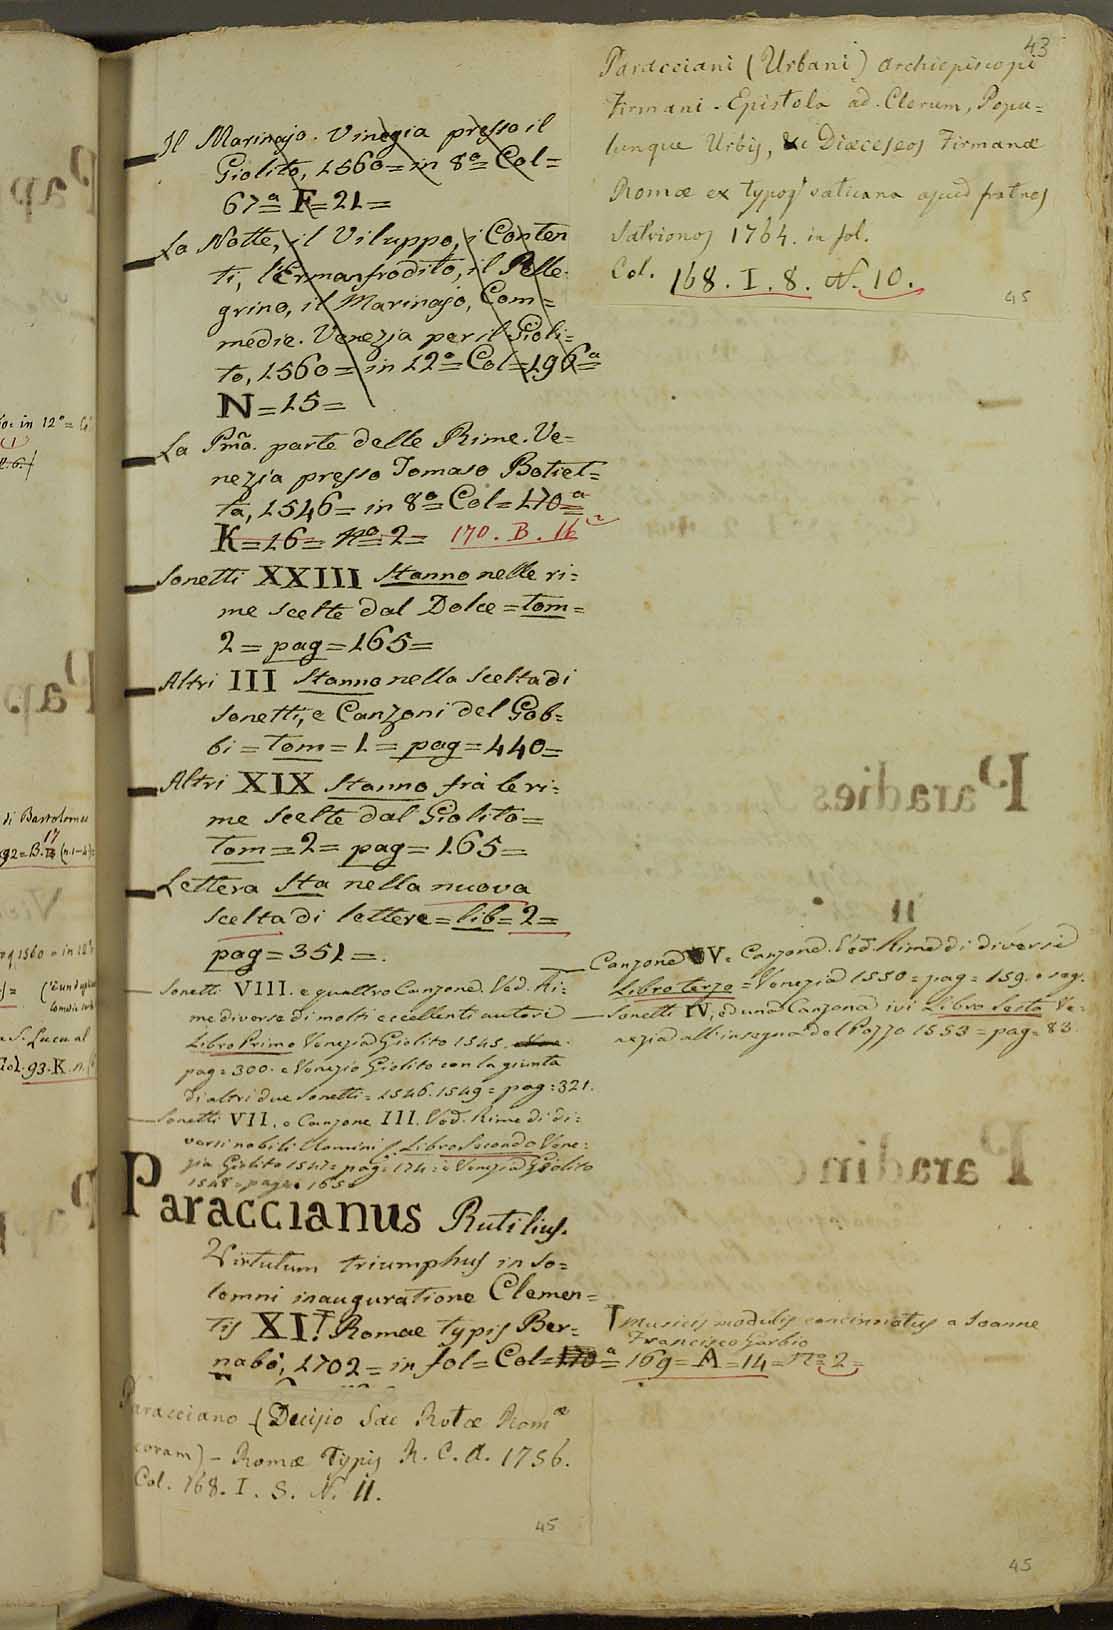 43
Il Marinajo. Vinegia presso il
Giolito, 1560 = in 8º = Col =
67ª = F = 21 =
La Notte, il Viluppo, i Conten
ti, l'Ermanfrodito, il Pelle-
grino, il Marinajo, Com=
medie. Venezia per il Gioli=
to, 1560 = in 12º = Col = 196ª =
N = 15 =
La Pm̃a. parte delle Rime. Ve=
nezia presso Tomaso Botiet=
ta, 1546 = in 8º = Col = 170ª =
K = 16 = Nº = 2 = 170. B. 16
Sonetti XXIII Stanno nelle ri=
me scelte dal Dolce = tom =
2 = pag = 165 =
Altri III Stanno nella scelta di
Sonetti, e Canzoni del Gob=
bi = Tom = 1 = pag = 440 =
Altri XIX Stanno frà le ri=
me scelte dal Giolito =
Tom = 2 = pag = 165 =
Lettera Sta nella nuova
scelta di lettere = lib = 2 =
pag = 351 =.
Sonetti VIII. e quattro Canzone. Ved. Ri=
me diverse di molti eccellenti autori
Libro Primo Venezia Giolito 1545.
pag = 300. e Venezia Giolito con la giunta
di altri due Sonetti = 1546. 1549 = pag = 321.
Sonetti VII. e Canzone III. Ved. Rime di di=
versi nobili Uomini Libro Secondo Vene=
zia Giolito 1547 = pag = 174 = e Venezia Giolito
1548 = pag = 165
Paraccianus Rutilius.
Virtutum triumphus in so=
lemni inauguratione Clemen=
tis XI. Romae typis Ber=
nabò, 1702 = in fol = Col = 170ª = 169 = A = 14 = Nº = 2 =
Paracciano (Decisio Sac Rotæ Romæ
coram) - Romæ Typis R. C. A. 1756.
Col. 168. I. 8. N. 11.
45
Paracciani (Urbani) Archiepiscopi
Firmani - Epistola ad Clerum, Popu=
lunque Urbis, & Diæceseos Firmanæ
Romæ ex typog vaticana apud fratres
Salvionos 1764. in fol.
Col. 168. I. 8. N. 10.
45
Canzone V. Canzone. Ved. Rime di diversi
Libro terzo = Venezia 1550 = pag = 159. e seg.
Sonetti IV, ed una Canzona ivi Libro Sesto Ve=
nezia all'insegna del Pozzo 1553 = pag = 83.
Musicis modulis concinnatus a Joanne
Francisco Garbio
45